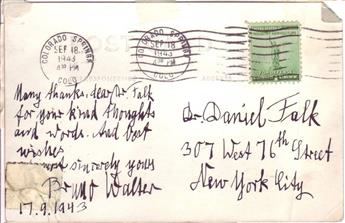 COLORADO SPRINGS
SEP 18
1943
4 30 PM
COLO
COLORADO SPRINGS
SEP 18
1943
4 30 PM
COLO
Many thanks, dear Dr. Falk
for your kind thoughts
and words. And best
wishes
most sincerely yours
Bruno Walter
17.9.1943
Dr. Daniel Falk
307 West 76th Street
New York City